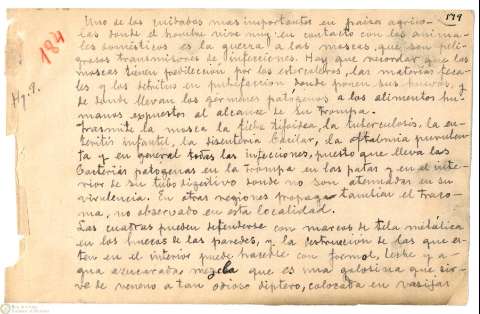 179
184
Hg.9.
Uno de los cuidados mas importantes en paises agrico-
las donde el hombre vive muy en contacto con los anima-
les domésticos es la guerra a las moscas, que son peli-
grosas transmisoras de infecciones. Hay que recordar que las
moscas tienen predilección por los estercoleros, las materias feca-
les y los detritus en putrefaccion donde ponen sus huevos, y
de donde llevan los gérmenes patógenos a los alimentos hu-
manos expuestos al alcance de su trompa.
Trasmite la mosca la fiebre tifoidea, la tuberculosis, la en-
teritis infantil, la disenteria bacilar, la oftalmia purulen-
ta y en general todas las infecciones, puesto que lleva las
bacterias patogenas en la trompa en las patas y en el inte-
rior de su tubo digestivo donde no son atenuadas en su
virulencia. En otras regiones propaga tambien el traco-
ma, no observado en esta localidad.
Las cuadras pueden defenderse con marcos de tela metálica
en los huecos de las paredes, y la destrucción de las que es-
ten en el interior puede hacerse con formol, leche y a-
gua azucarada mezcla que es una golosina que sir-
ve de veneno a tan odioso diptero, colocada en vasijas